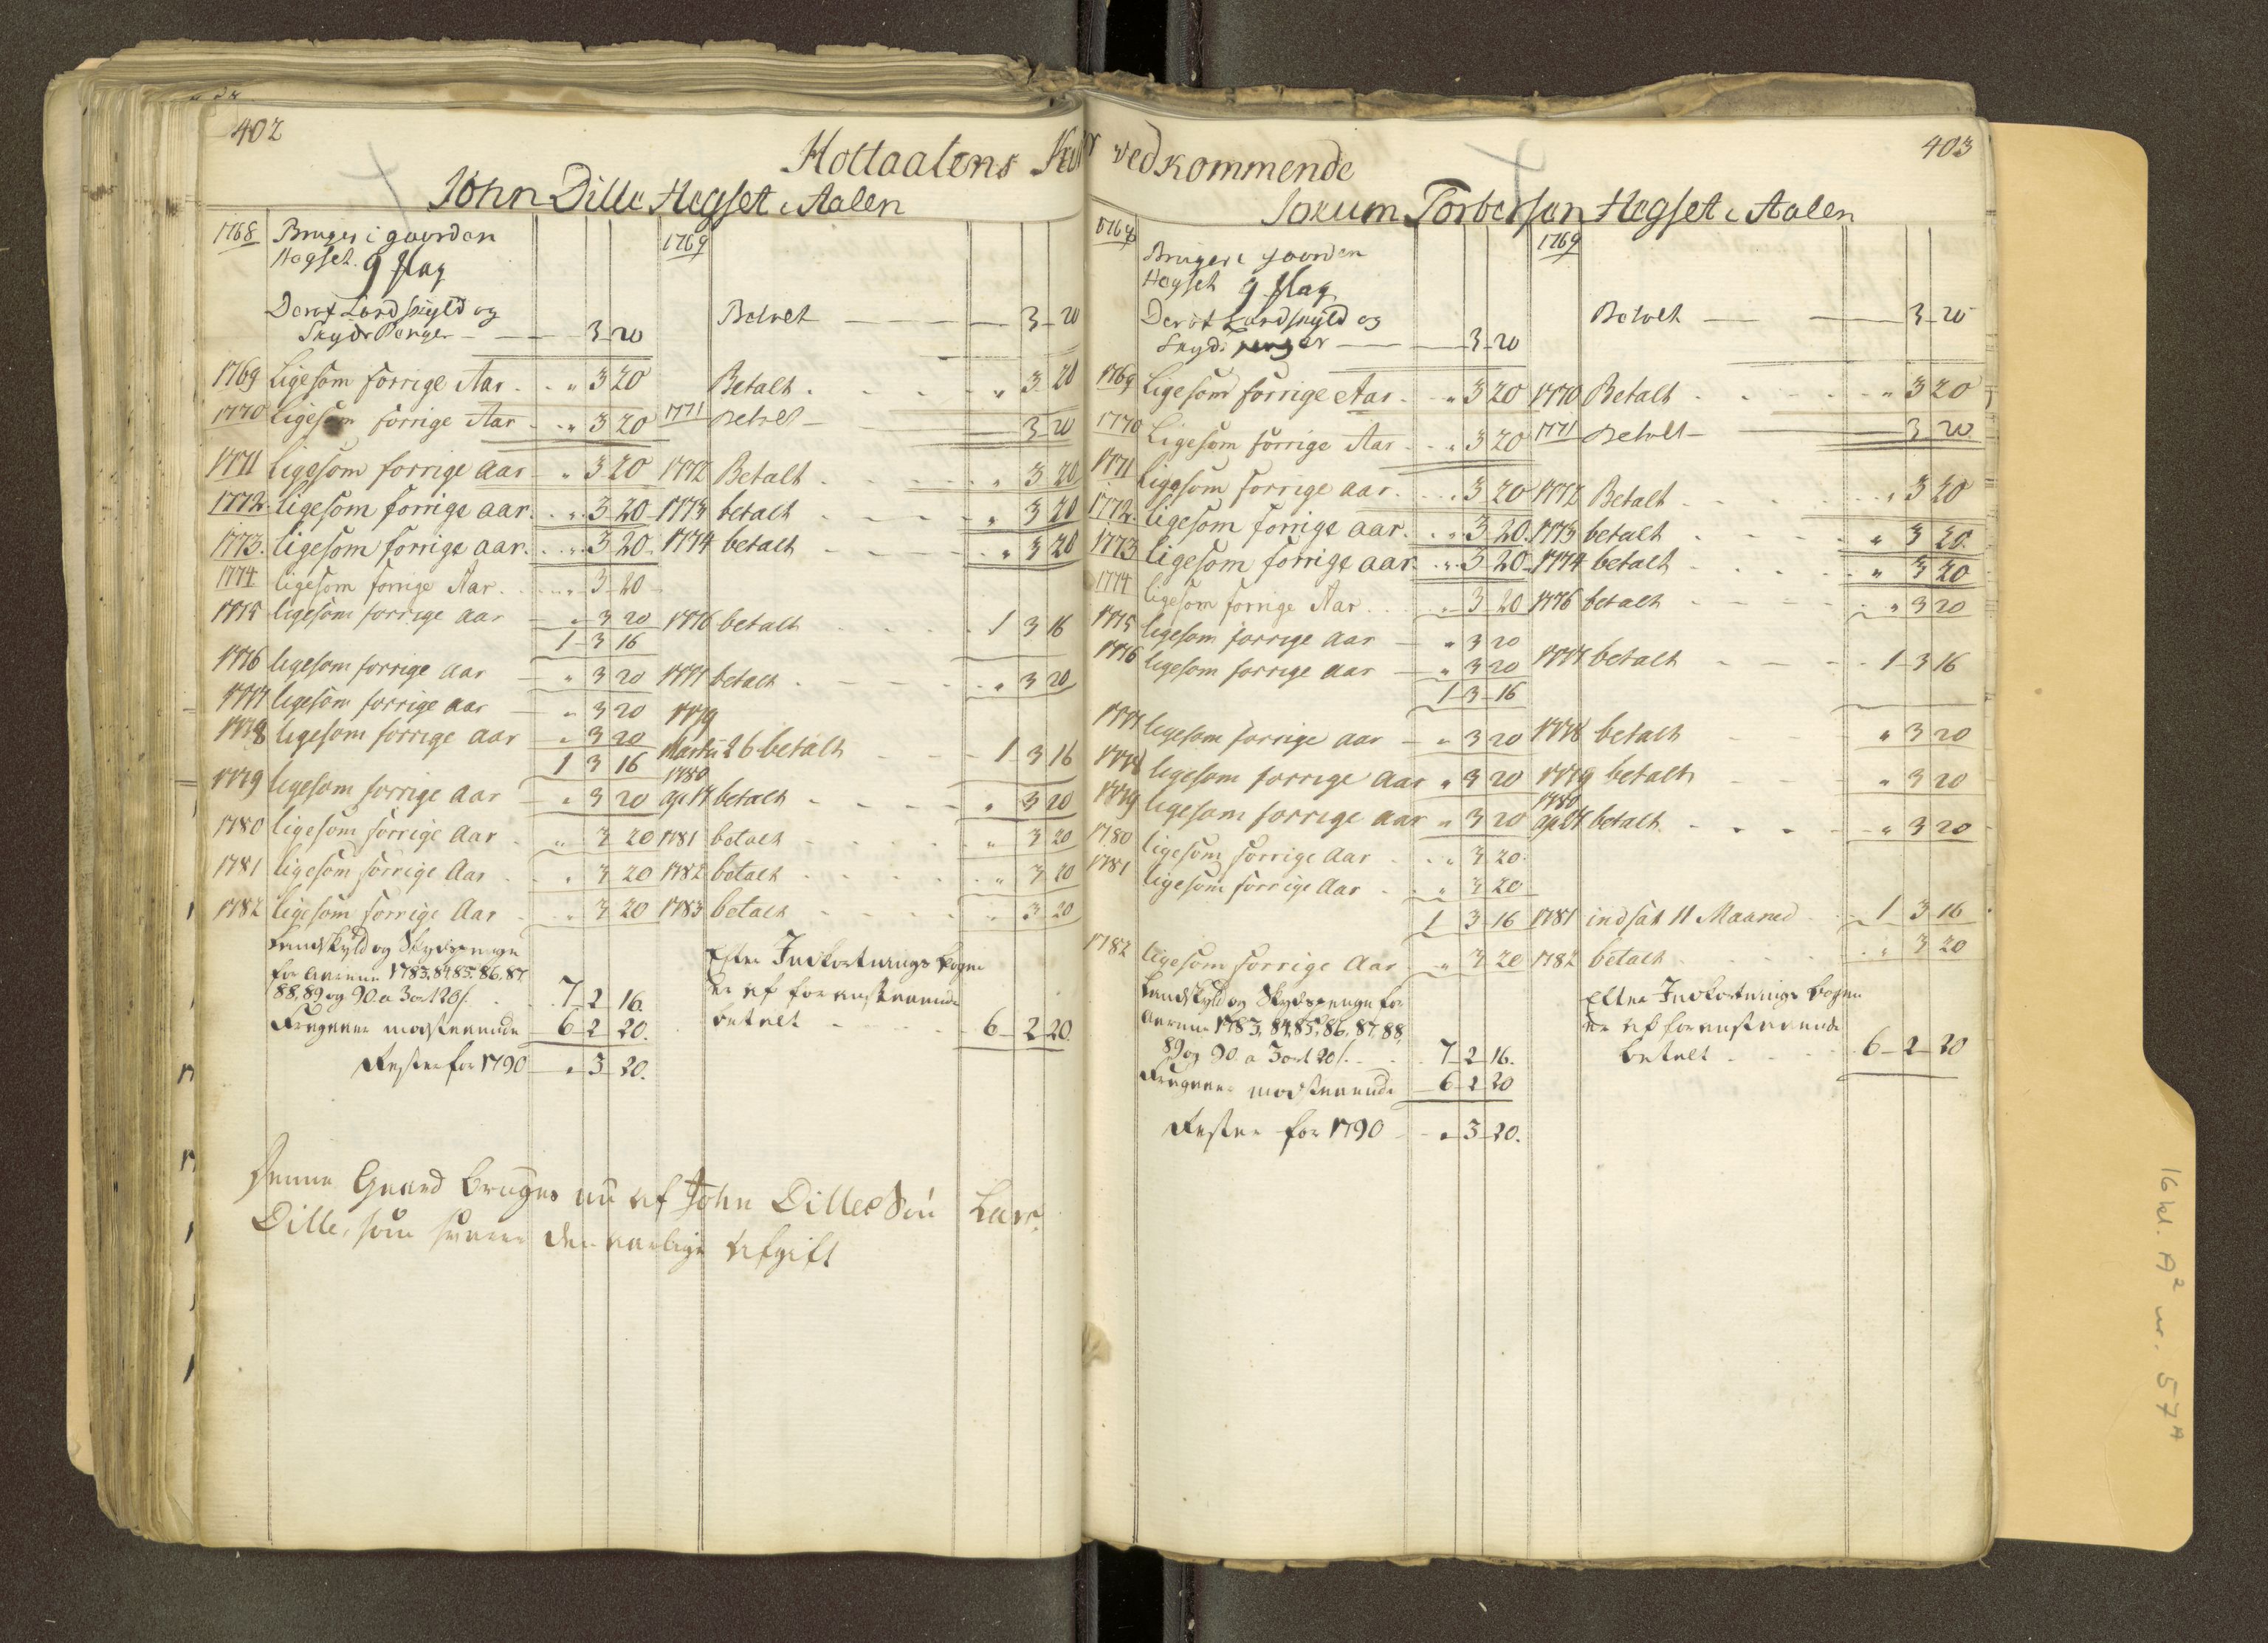 402
Holtaalens
John Dille Hegset i Aalen
1768 Bruger i gaarden 1769
Hegset 9 Mag
Deraf Landskyld og Betalt 3 20
Skyds Penger 3 20
1769 Ligesom forrige Aar " 3 20 Betalt " 3 20
1770 Ligesom forrige Aar " 3 20 1771 Betalt 3 20
1771 Ligesom forrige aar " 3 20 1772 Betalt " 3 20
1772 ligesom forrige aar " 3 20 1773 betalt " 3 20
1773. ligesom forrige aar " 3 20 1774 betalt " 3 20
1774 ligesom forrige Aar " 3 20
1775 ligesom forrige aar " 3 20 1776 betalt 1 3 16
1 3 16
1776 ligesom forrige aar " 3 20 1777 betalt " 3 20
1777 ligesom forrige aar " 3 20 1779
1778 ligesom forrige aar " 3 20 Martii 26 betalt 1 3 16
1 3 16 1780
1779 ligesom forrige aar " 3 20 ap 17 betalt " 3 20
1780 ligesom forrige Aar " 3 20 1781 betalt " 3 20
1781 ligesom forrige Aar " 3 20 1782 betalt " 3 20
1782 ligesom forrige Aar " 3 20 1783 betalt " 3 20
Landskyld og Skydspenge Efter Indkortnings bogen
for aarene 1783. 84. 85. 86. 87. er af foranstaaende
88, 89 og 90. a 3 ort 20 s. 7 2 16. betalt 6 2 20.
Fragaaer modstaaende 6 2 20.
Rester for 1790 " 3 20.
Denne Gaard bruges nu af John Dilles Søn Lars
Dille, som svarer den aarlige Afgift
403
vedkommende
Jorum Torbersen Hegset i Aalen
1768 Bruger i gaarden 1769
Hegset 9 Mag
Deraf Landskyld og Betalt 3 20
Skyds penger 3 20
1769 Ligesom forrige Aar " 3 20 1770 Betalt " 3 20
1770 Ligesom forrige Aar " 3 20 1771 Betalt 3 20
1771 Ligesom forrige aar " 3 20 1772 Betalt " 3 20
1772 ligesom forrige aar " 3 20. 1773 betalt " 3 20.
1773 ligesom forrige aar " 3 20. 1774 betalt " 3 20
1774 ligesom forrige Aar " 3 20 1776 betalt " 3 20
1775 ligesom forrige aar " 3 20
1776 ligesom forrige aar " 3 20 1777 betalt 1 3 16
1 3 16
1777 ligesom forrige aar " 3 20 1778 betalt " 3 20
1778 ligesom forrige Aar " 3 20 1779 betalt " 3 20
1780
1779 ligesom forrige aar " 3 20 ap 17 betalt " 3 20
1780 ligesom forrige Aar " 3 20.
1781 ligesom forrige Aar " 3 20
1 3 16 1781 indsat 11 Maaned 1 3 16
1782 ligesom forrige Aar " 3 20 1782 betalt " 3 20
Landskyld og Skydspenge for Efter Indkortnings bogen
aarene 1783, 84, 85, 86, 87, 88, er af foranstaaende
89 og 90. a 3 ort 20 s. 7 2 16. betalt 6 2 20
Fragaaer modstaaende 6 2 20
Rester for 1790 " 3 20.
16 kl. A2 nr. 57A